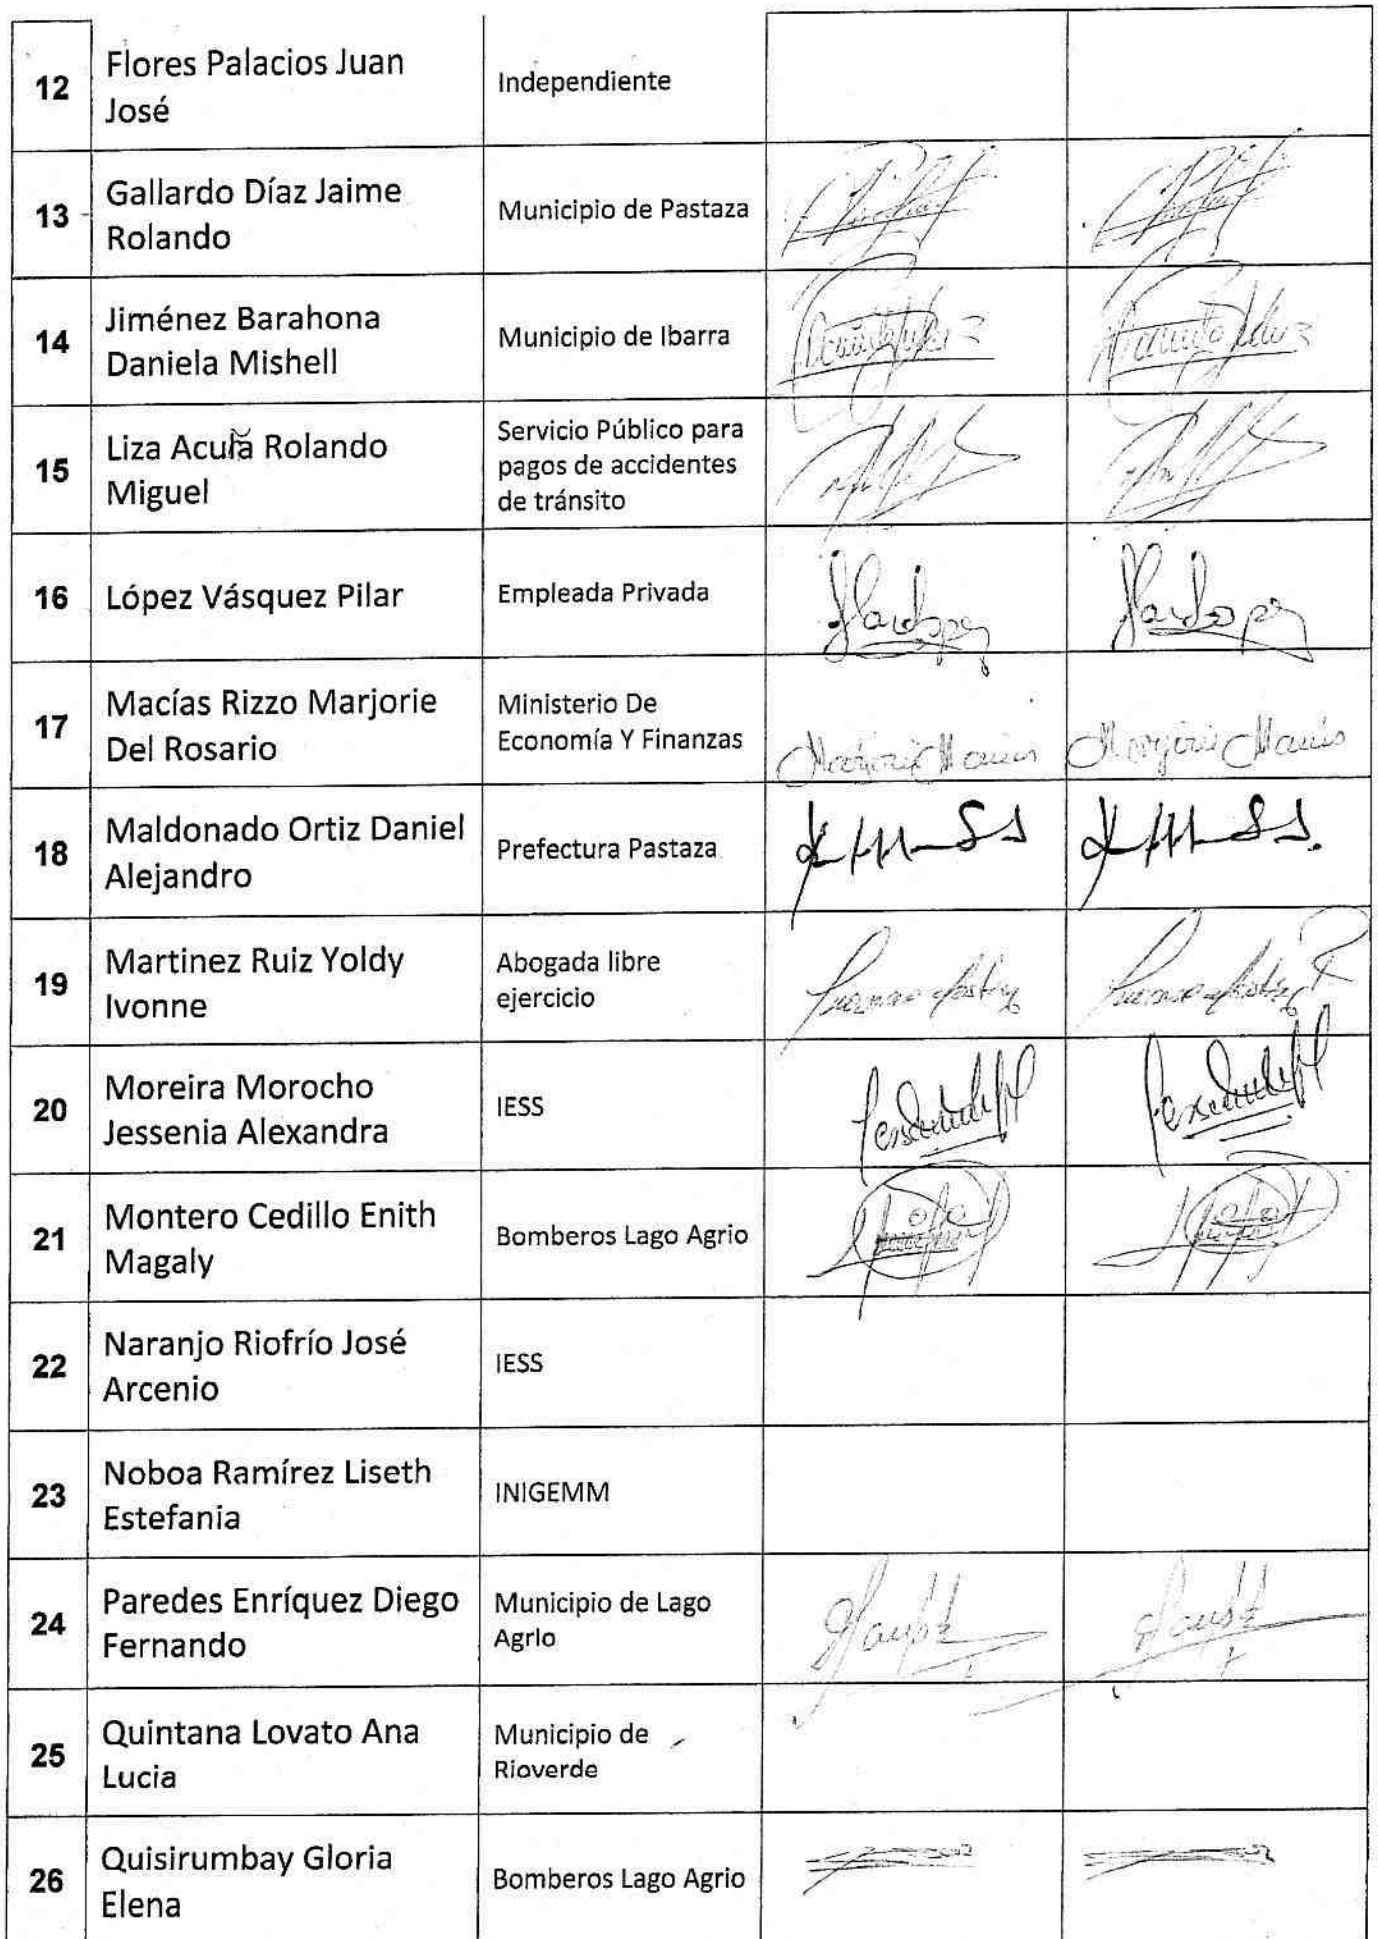 12
Flores Palacios Juan
José
Independiente
13
Gallardo Díaz Jaime
Rolando
Municipio de Pastaza
14
Jiménez Barahona
Daniela Mishell
Municipio de Ibarra
15
Liza Acuña Rolando
Miguel
Servicio Público para
pagos de accidentes
de tránsito
16
López Vásquez Pilar
Empleada Privada
17
Macías Rizzo Marjorie
Del Rosario
Ministerio De
Economía Y Finanzas
Marjorie Macías
Marjorie Macías
18
Maldonado Ortiz Daniel
Alejandro
Prefectura Pastaza
19
Martinez Ruiz Yoldy
Ivonne
Abogada libre
ejercicio
20
Moreira Morocho
Jessenia Alexandra
IESS
21
Montero Cedillo Enith
Magaly
Bomberos Lago Agrio
22
Naranjo Riofrío José
Arcenio
IESS
23
Noboa Ramírez Liseth
Estefania
INIGEMM
24
Paredes Enríquez Diego
Fernando
Municipio de Lago
Agrio
25
Quintana Lovato Ana
Lucia
Municipio de
Rioverde
26
Quisirumbay Gloria
Elena
Bomberos Lago Agrio